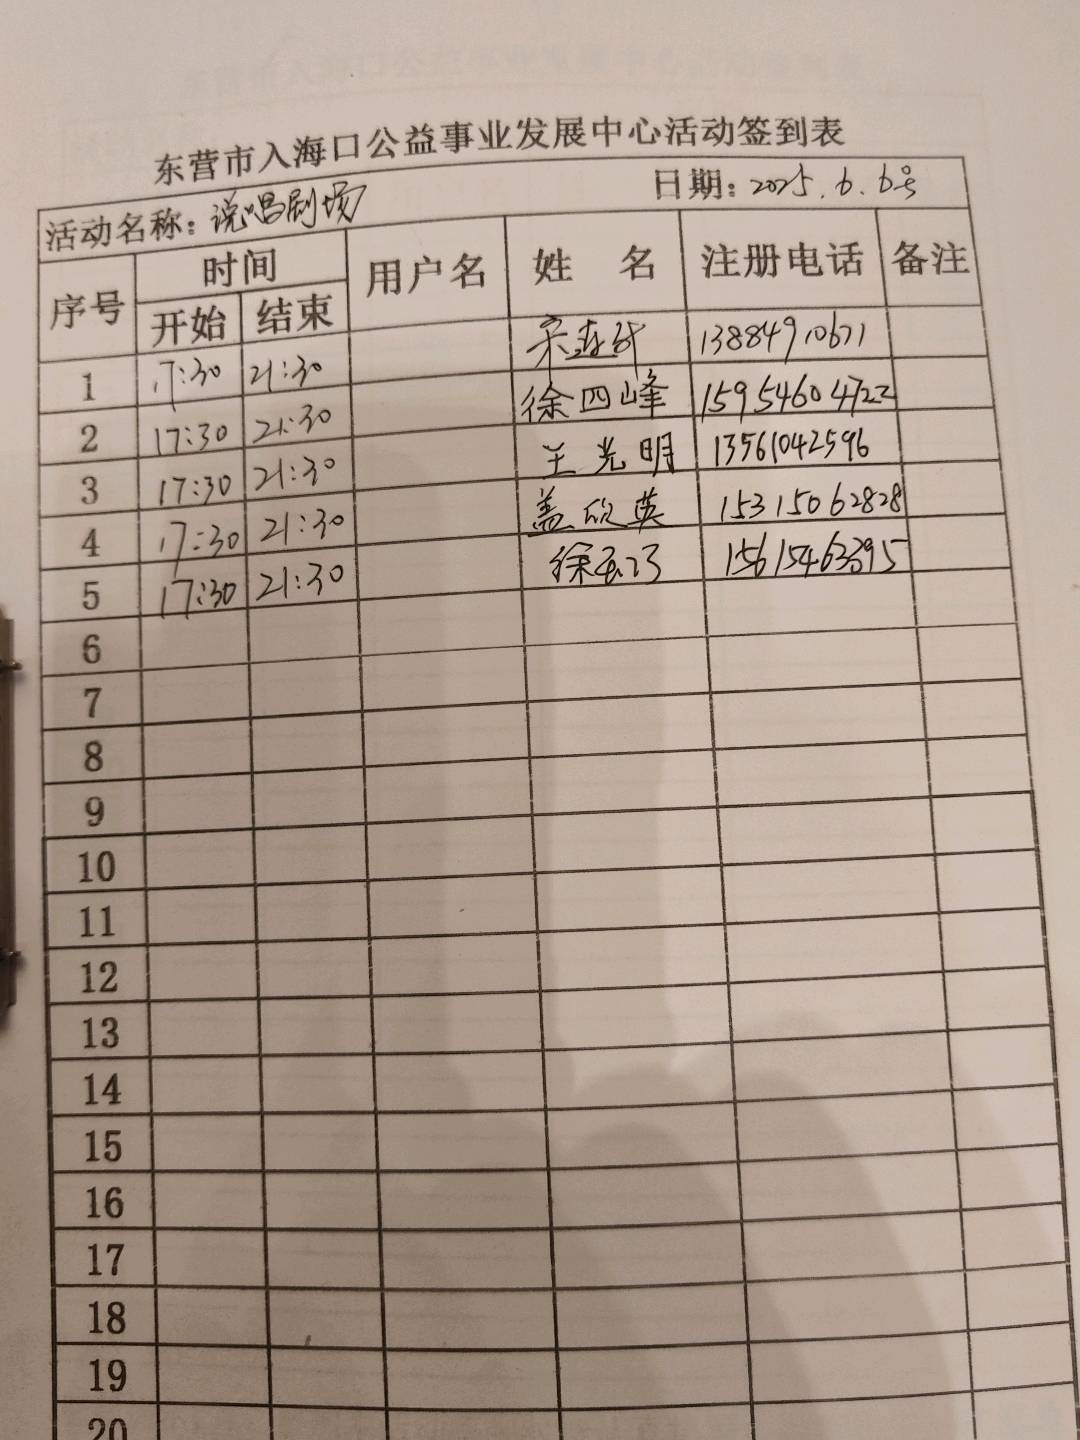 东营市入海口公益事业发展中心活动签到表
活动名称：说唱剧场 日期：2025.6.6号
序号 时间 用户名 姓名 注册电话 备注
开始 结束
1 17:30 21:30 13884910671
2 17:30 21:30 徐四峰 15954604722
3 17:30 21:30 王光明 13561042596
4 17:30 21:30 盖欣英 15315062828
5 17:30 21:30 徐 15615463395
6
7
8
9
10
11
12
13
14
15
16
17
18
19
20